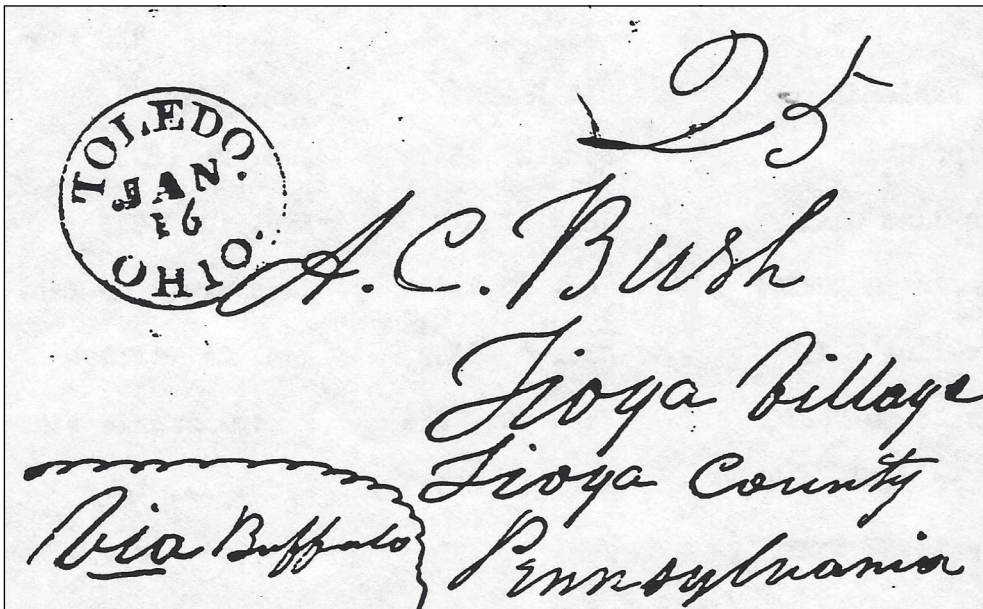 TOLEDO.
JAN
16
OHIO.
25
A. C. Bush
Tioga Village
Tioga County
Pennsylvania
Via Buffalo